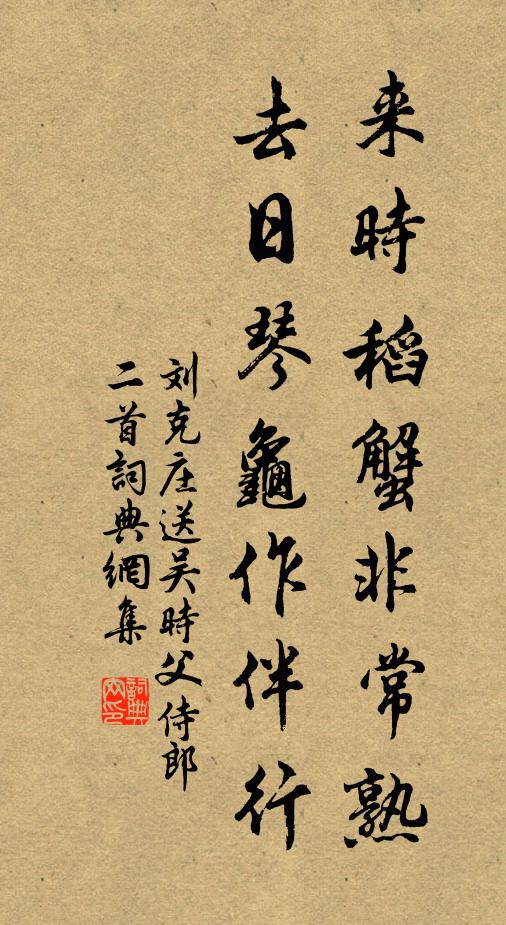 来時稻蟹非常熟
去日琴龜作伴行
刘克庄送吴時父侍郎
二首詞典網集
詞典
网印